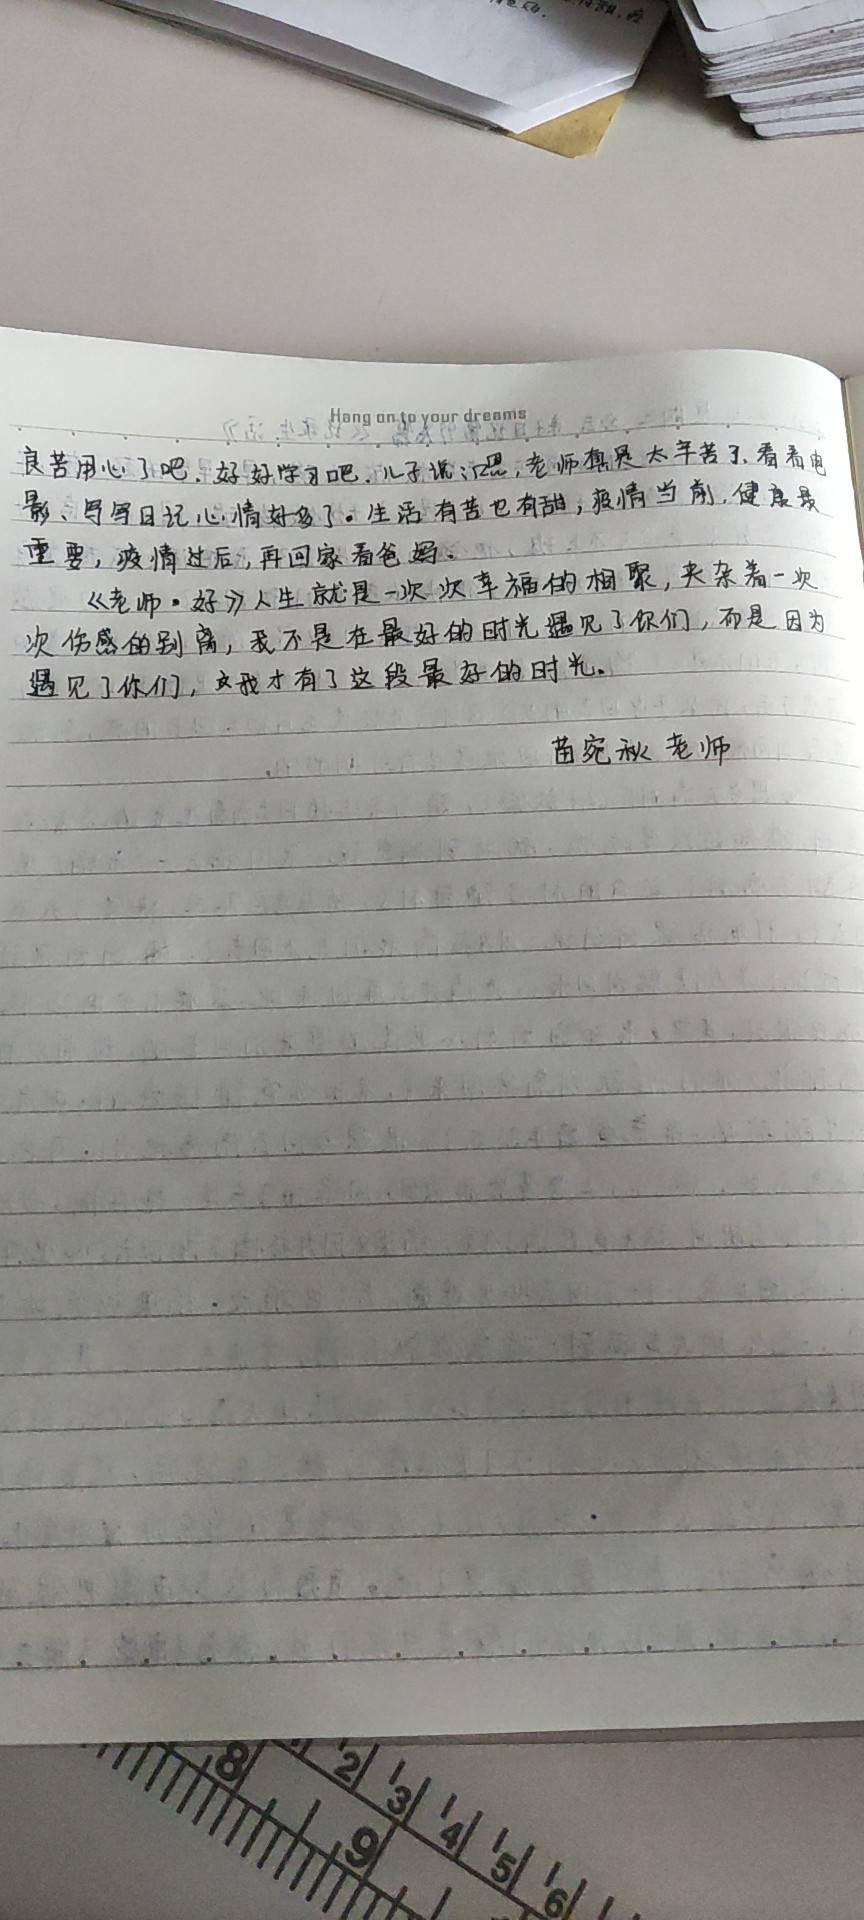 Hang on to your dreams
良苦用心了吧,好好学习吧,儿子说:嗯,老师真是太辛苦了,看看电
影、写写日记心情好多了。生活有苦也有甜,疫情当前,健康最
重要,疫情过后,再回家看爸妈。
《老师·好》人生就是一次次幸福的相聚,夹杂着一次
次伤感的别离,我不是在最好的时光遇见了你们,而是因为
遇见了你们,我才有了这段最好的时光。
苗宛秋老师
8
9
12
13
14
15
16